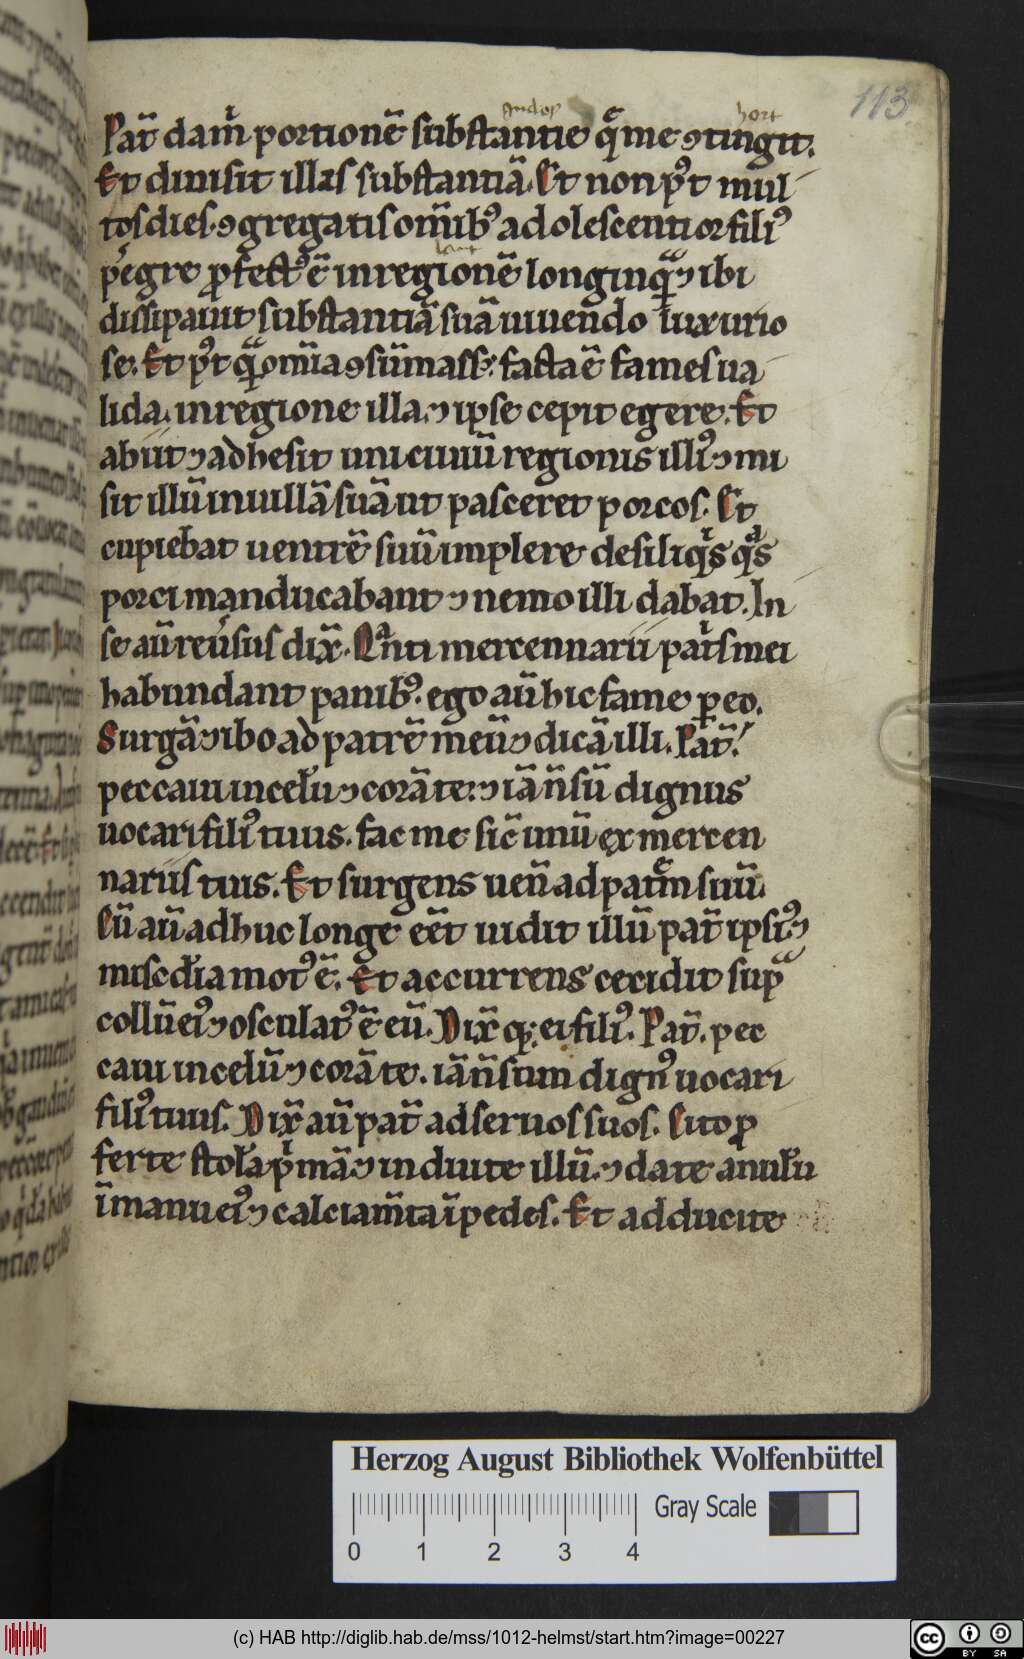 113
Pat̄ da m̄ portionē substantie q̄ me ꝯtingit.
Et diuisit illis substantiā. Et non pꝰt mul
tos dies. ꝯgregatis om̄ibꝰ adolescentior filiꝰ
pegre ꝓfectꝰ ē in regionē longinquā ⁊ ibi
dissipauit substantiā suā uiuendo luxurio
se. Et pꝰt quā om̄ia ꝯsūmass; facta ē fames ua
lida in regione illa. ⁊ ipse cepit egere. Et
abiit ⁊ adhesit uni ciuiū regionis illiꝰ ⁊ mi
sit illū in uillā suā ut pasceret porcos. Et
cupiebat uentrē suū implere de siliqͥs qͣs
porci manducabant ⁊ nemo illi dabat. In
se aū reuͥsus dix̄. Qͣnti mercennarii patͥs mei
habundant panibꝰ. ego aū hic fame ꝑeo.
Surgā ⁊ ibo ad patrē meū ⁊ dicā illi. Pat̄.
peccaui in celū ⁊ corā te. ⁊ iā n̄ sū dignus
uocari filiꝰ tuus. fac me sic̄ unū ex mercen
nariis tuis. Et surgens uen̄ ad patͤm suū.
Cū aū adhuc longe eēt uidit illū pat̄ ipsiꝰ ⁊
misc̄dia motꝰ ē. Et accurrens cecidit supͣ
collū eiꝰ ⁊ osculatꝰ ē eū. Dix̄ q; ei filiꝰ. Pat̄. pec
caui in celū ⁊ corā te. iā n̄ sum dignꝰ uocari
filiꝰ tuus. Dix̄ aū pat̄ ad seruos suos. Cito ꝓ
ferte stolā pͥmā ⁊ induite illū. ⁊ date anulū
ī manu eiꝰ ⁊ calciam̄ta ī pedes. Et adducite
Herzog August Bibliothek Wolfenbüttel
Gray Scale
0 1 2 3 4
(c) HAB http://diglib.hab.de/mss/1012-helmst/start.htm?image=00227
cc BY SA